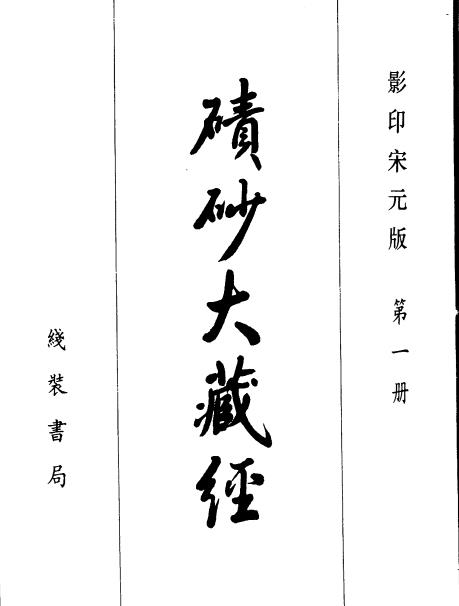 影印宋元版 第一册
磧砂大藏經
綫裝書局